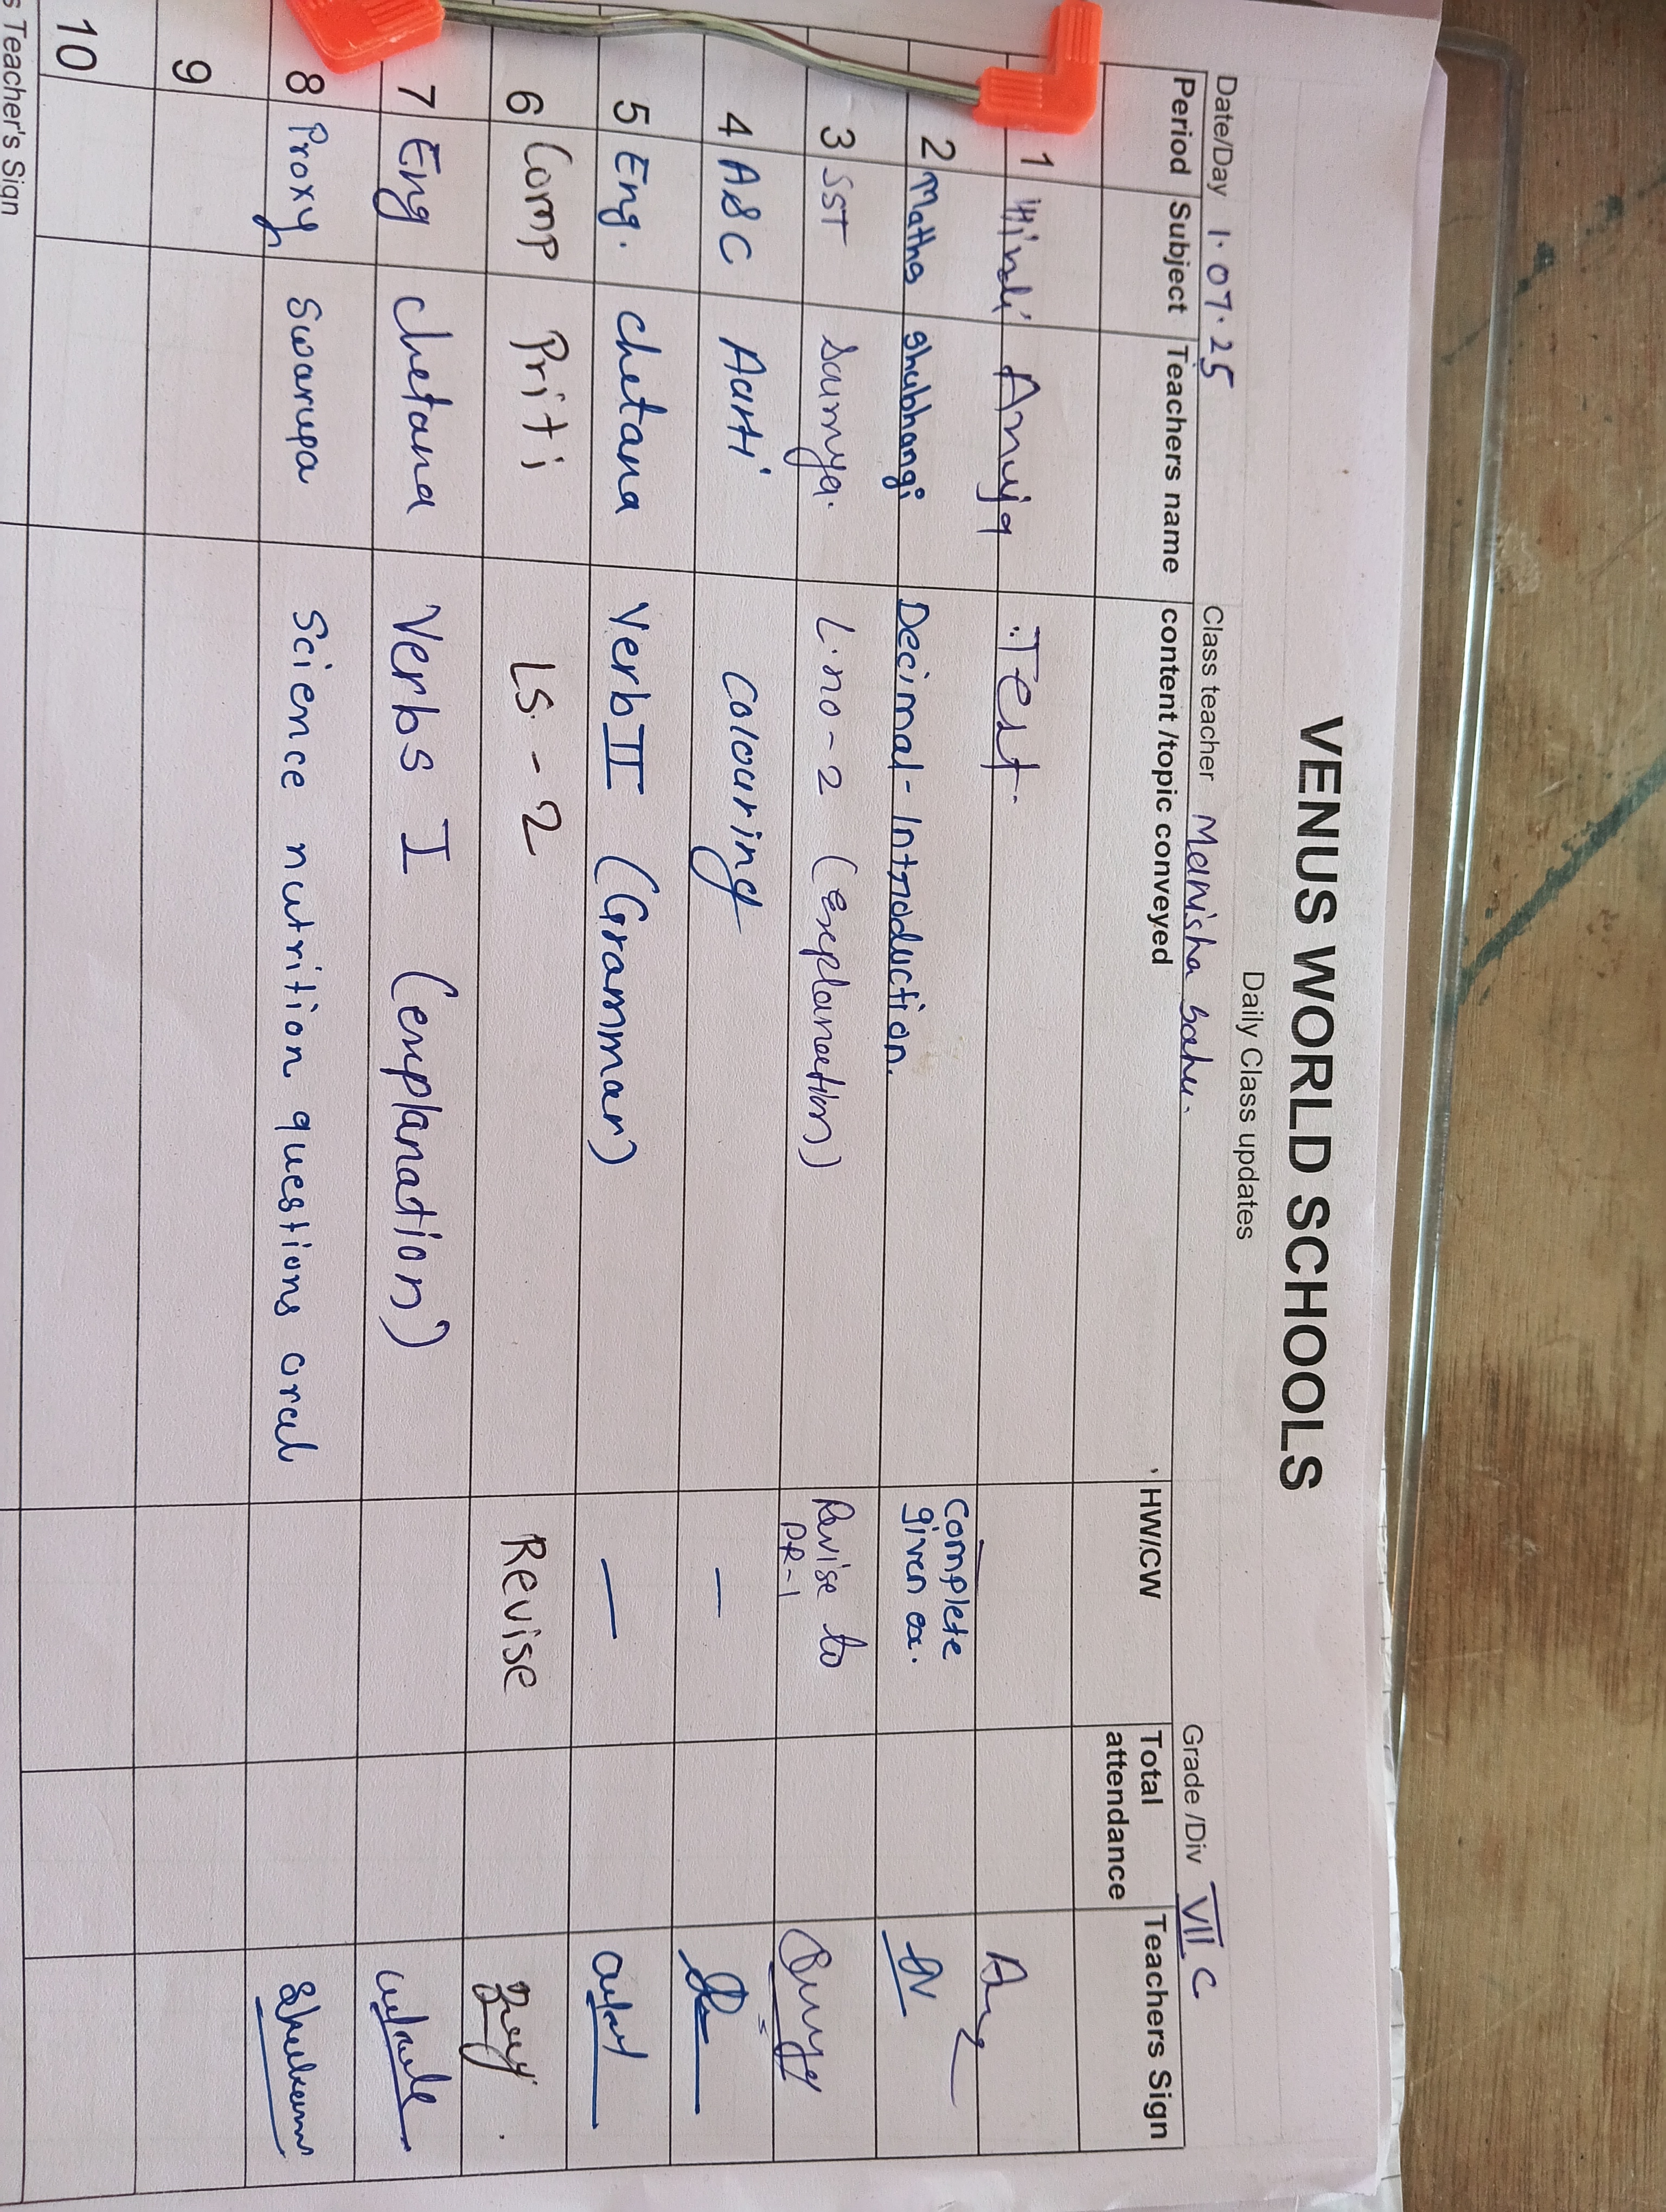 VENUS WORLD SCHOOLS
Daily Class updates
Date/Day 1.07.25 Class teacher Manisha Sahu. Grade /Div VII C
Period Subject Teachers name content /topic conveyed HW/CW Total attendance Teachers Sign
1 Hindi Anuja Test.
2 Maths Shubhangi Decimal - Introduction. Complete given ex.
3 SST Saumya. L.no-2 (Explanation) Revise to PR-1
4 ASC Aarti Colouring —
5 Eng. Chetana Verb II (Grammar) —
6 Comp Priti LS.-2 Revise
7 Eng Chetana Verbs I (explanation)
8 Proxy Swarupa Science nutrition questions oral
9
10
s Teacher's Sign